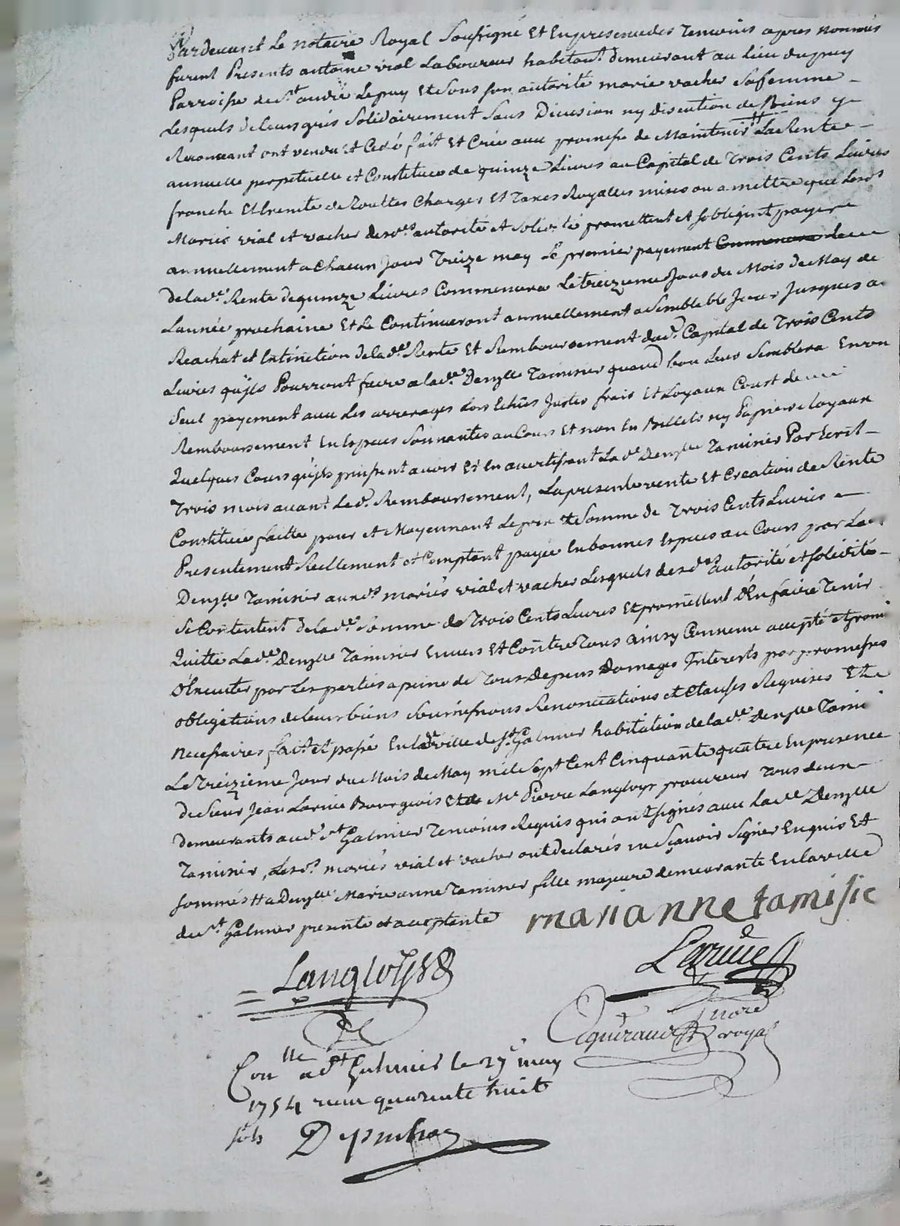 Pardevant Le notaire Royal Soussigné Et En presence des Temoins apres nommés
furent Presents antoine vial Laboureur habitant demeurant au Lieu du puy
Parroisse de St andré Le puy Et Sous son autorité marie vacher Sa femme
Lesquels de Leurs grés Solidairement Sans Division ny discution de Biens y
Renoncant ont vendu et Cedé fait Et Créé avec promesse de Maintenir # La Rente
annuelle perpetuelle et Constituée de quinze Livres au Capital de Trois Cents Livres
franche Et Exente de Touttes Charges Et Taxes Royalles mises ou a mettre que Lesds
Mariés vial et vacher desdes autorité et Solidité promettent et sobligent payer
annuellement a Chacun Jour Treize may Le premier payement Commencera
de lade Rente de quinze Livres Commencera Le treizieme Jour du Mois de May de
Lannée prochaine Et Le Continueront annuellement a Semblable Jour Jusques a
Reachat et Extinction de lade Rente Et Remboursement dud Capital de Trois Cents
Livres qu'ils Pourront faire a lade Denzlle Tamisier quand bon Leur Semblera En un
Seul payement avec Les arrerages Lors Echus Justes frais Et Loyaux Coust
Remboursement En Especes Sonnantes au Cours Et non En Billets ny Papiers Royaux
Quelques Cours qu'ils puissent avoir Et En avertissant Lade Denzlle Tamisier Par Ecrit
Trois mois avant Led Remboursement, La presente vente et Création de Rente
Constituée faitte pour et Moyennant Le prix et Somme de Trois Cents Livres
Presentement Reellement et Comptant payée En bonnes Especes au Cours par La
Denzlle Tamisier auxds mariés vial et vacher Lesquels desdes autorité et solidité
Se Contentent de lade Somme de Trois Cents Livres Et promettent d'En faire Tenir
Quitte Lade Denzlle Tamisier Envers Et Contre Tous Ainsy Convenu accepté et promis
D'Executer par Les parties a peine de Tous Depens Domages Interests par promesses
obligations de Leurs biens Soumissions Renonciations et Clauses Requises Et
Necessaires fait et passé En lade ville de St Galmier habitation de lade Denzlle Tamisier
Le Treizieme Jour du Mois de May mil Sept Cent Cinquante quatre En presence
de Sieur Jean Larivie Bourgeois et de Me Pierre Langloys procureur Tous deux
demeurants aud St Galmier Temoins Requis qui ont signés avec Lade Denzlle
Tamisier, Lesds mariés vial et vacher ont declarés ne Sçavoir Signer Enquis Et
sommés # a Denzlle Marie anne Tamisier fille majeure demeurante En la ville
de St Galmier presente et acceptante
marianne tamisie
Langloys
Larivie
nore
royal
Conlle a St Galmier le 27e may
1754 reçu quarente huit
sols